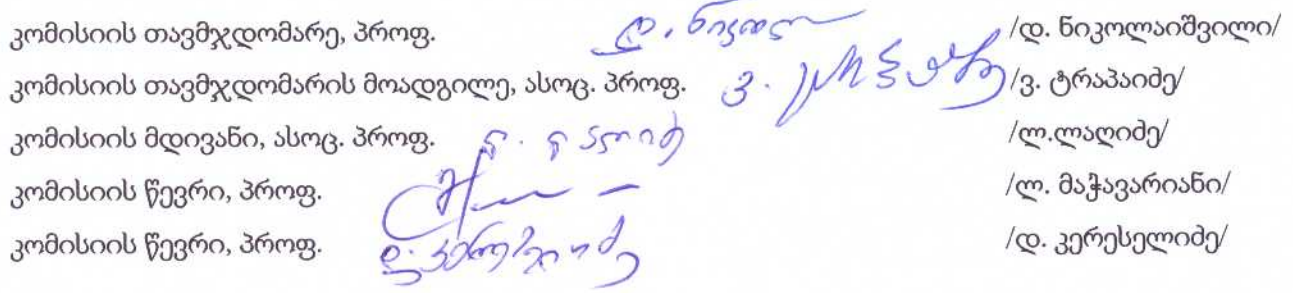 კომისიის თავმჯდომარე, პროფ. დ. ნიკოლ /დ. ნიკოლაიშვილი/
კომისიის თავმჯდომარის მოადგილე, ასოც. პროფ. ვ. /ვ. ტრაპაიძე/
კომისიის მდივანი, ასოც. პროფ. /ლ.ლაღიძე/
კომისიის წევრი, პროფ. /ლ. მაჭავარიანი/
კომისიის წევრი, პროფ. დ. კერესელიძე /დ. კერესელიძე/